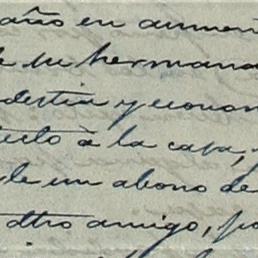 año en aumen
de su hermana
destia y econom
cto à la casa,
le un abono de
otro amigo, po